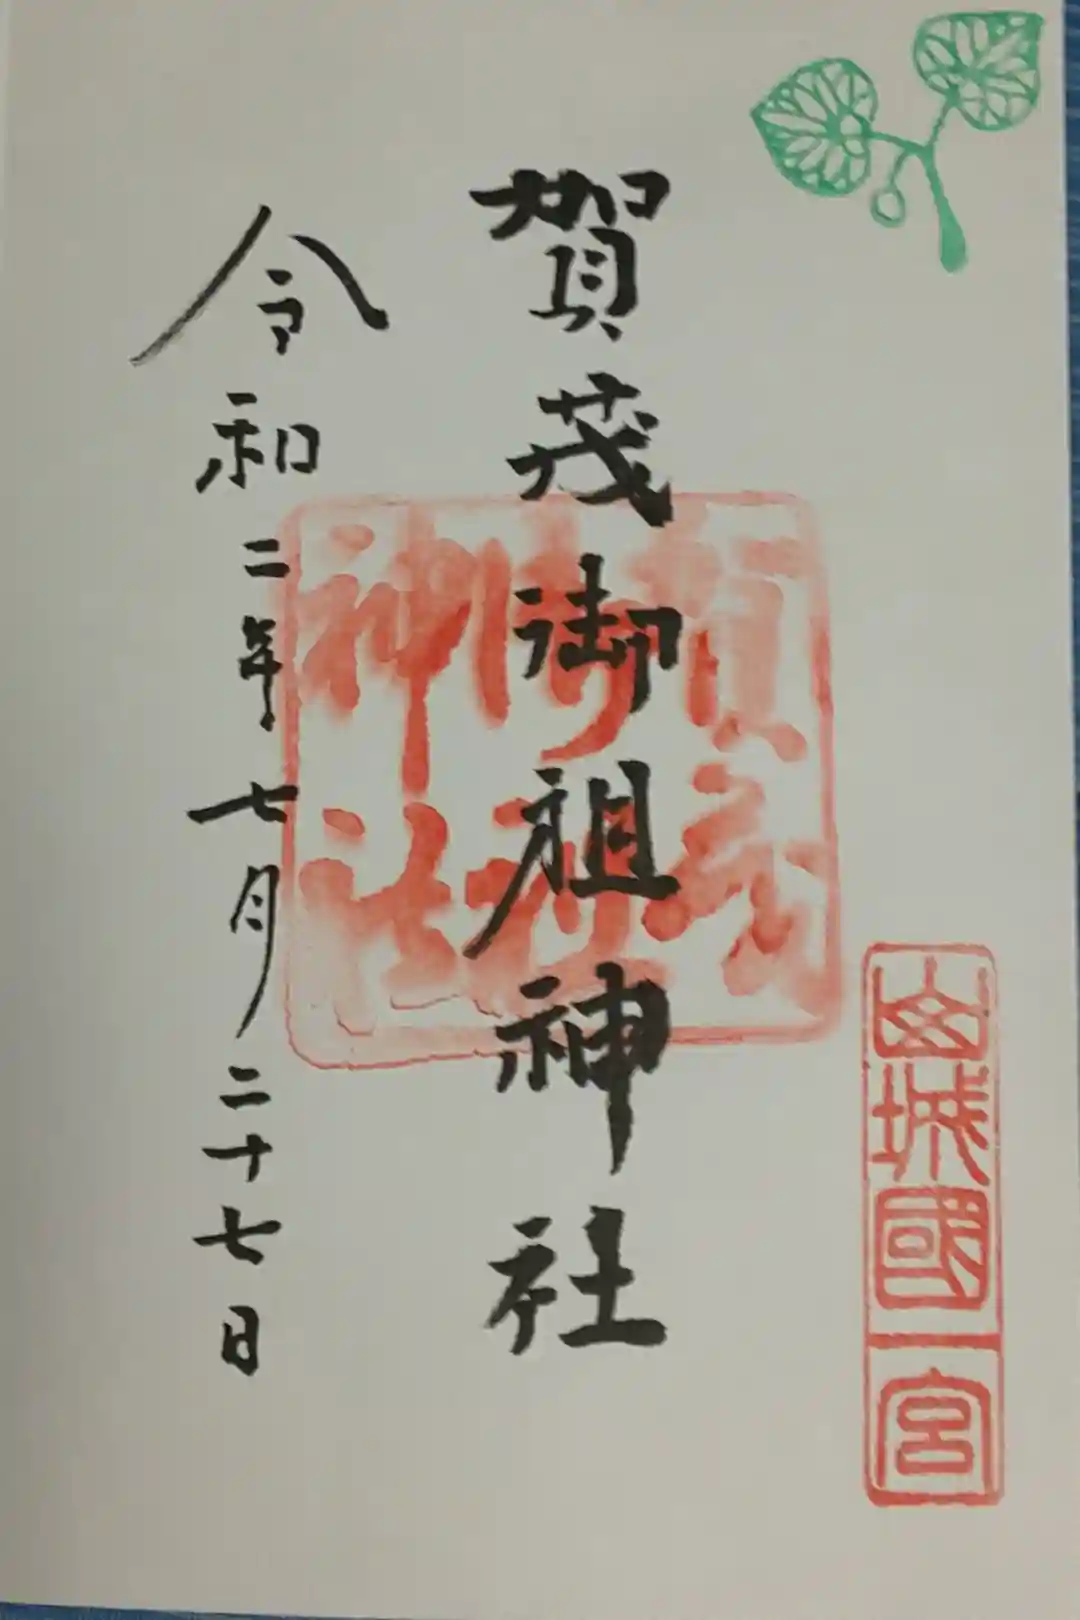 山城國一宮
賀茂御祖神社
賀茂
御祖
神社
令和二年七月二十七日